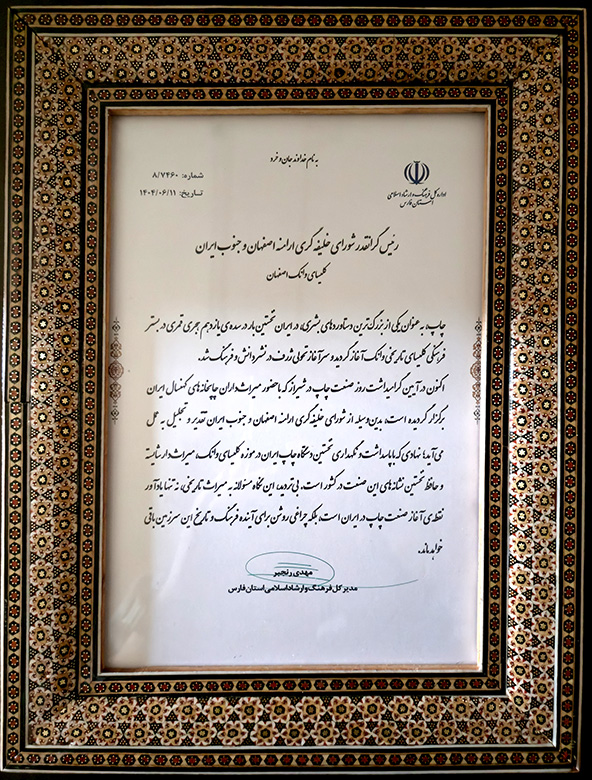 به نام خداوند جان و خرد
اداره کل فرهنگ و ارشاد اسلامی
استان فارس
شماره: ۸/۷۴۶۰
تاریخ: ۱۴۰۴/۰۶/۱۱
رئیس گرانقدر شورای خلیفه گری ارامنه اصفهان و جنوب ایران
کلیسای وانک اصفهان
چاپ، به عنوان یکی از بزرگ‌ترین دستاوردهای بشری، در ایران نخستین بار در سده‌ی یازدهم هجری قمری در بستر
فرهنگی کلیسای تاریخی وانک آغاز گردید و سرآغاز تحولی ژرف در نشر دانش و فرهنگ شد.
اکنون در آیین گرامیداشت روز صنعت چاپ در شیراز که با حضور میراث‌داران چاپخانه‌های کهنسال ایران
برگزار گردیده است، بدین وسیله از شورای خلیفه گری ارامنه اصفهان و جنوب ایران تقدیر و تجلیل به عمل
می آید؛ نهادی که با پاسداشت و نگهداری نخستین دستگاه چاپ ایران در موزه کلیسای وانک، میراث دار شایسته
و حافظ نخستین نشانه‌های این صنعت در کشور است. بی‌تردید، این نگاه مسئولانه به میراث تاریخی، نه تنها یادآور
نقطه‌ی آغاز صنعت چاپ در ایران است، بلکه چراغی روشن برای آینده فرهنگ و تاریخ این سرزمین باقی
خواهد ماند.
مهدی رنجبر
مدیرکل فرهنگ وارشاداسلامی استان فارس